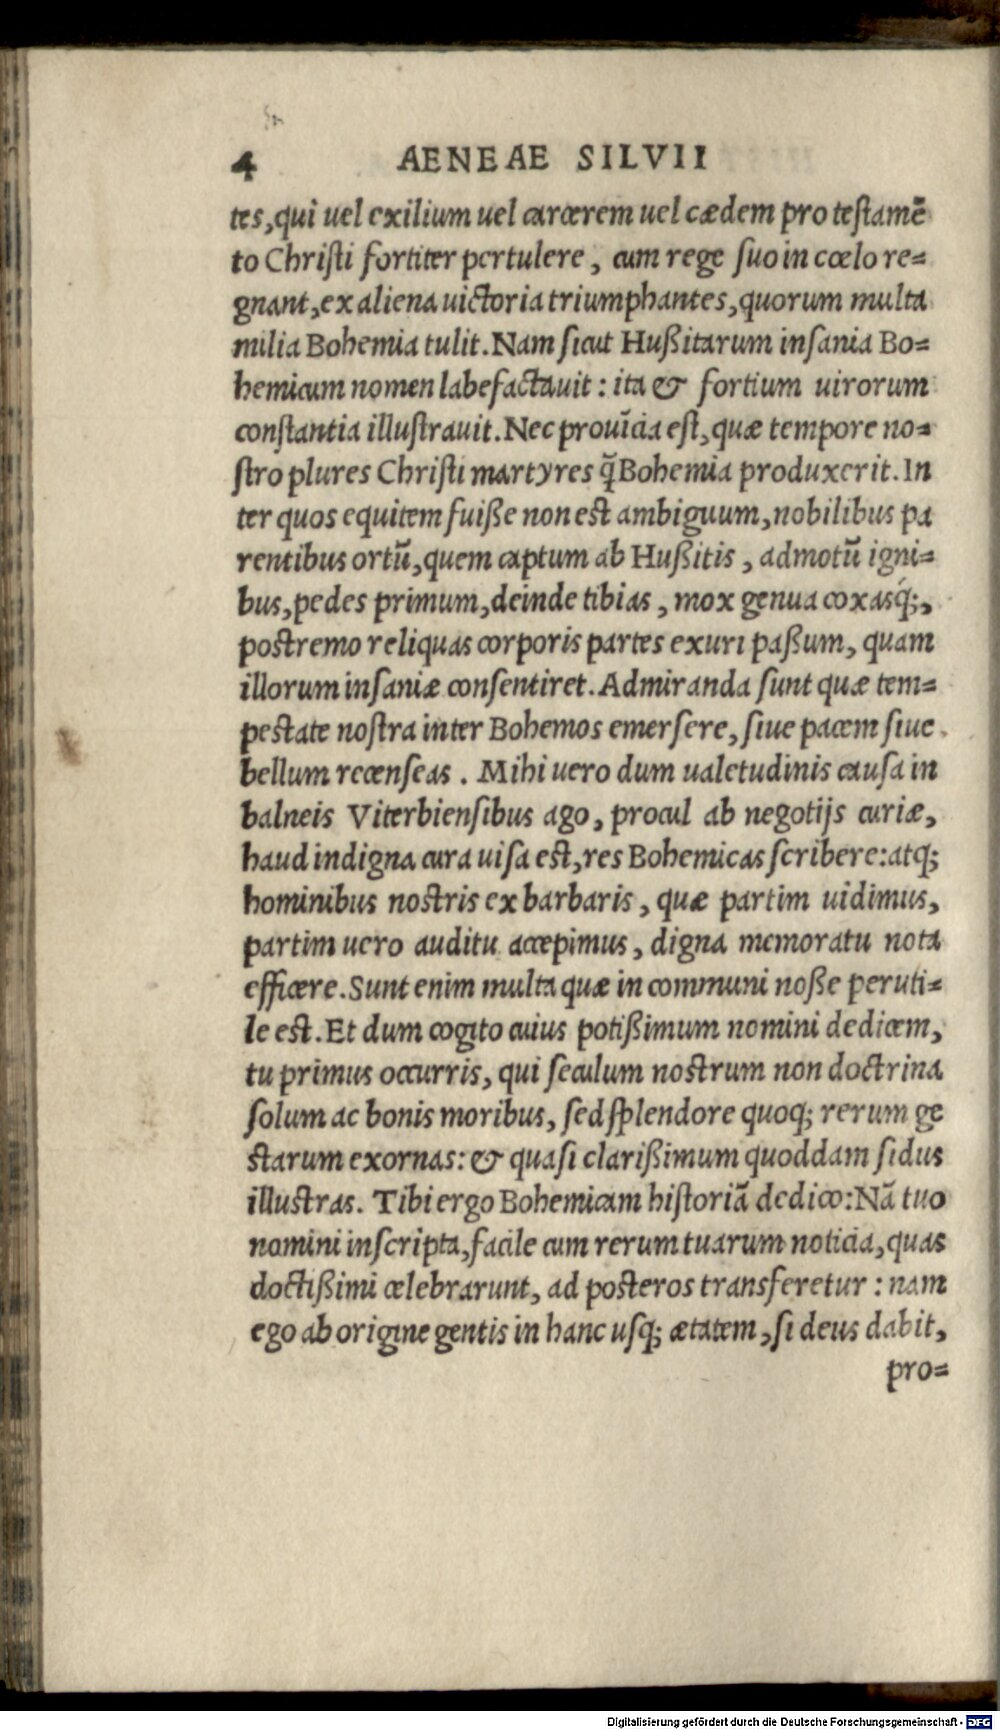 4 AENEAE SILVII
tes, qui uel exilium uel carcerem uel cædem pro testamē
to Christi fortiter pertulere, cum rege suo in cœlo re=
gnant, ex aliena uictoria triumphantes, quorum multa
milia Bohemia tulit. Nam sicut Hußitarum insania Bo=
hemicum nomen labefactauit: ita & fortium uirorum
constantia illustrauit. Nec prouīcia est, quæ tempore no=
stro plures Christi martyres q̄ Bohemia produxerit. In
ter quos equitem fuiße non est ambiguum, nobilibus pa
rentibus ortū, quem captum ab Hußitis, admotū igni=
bus, pedes primum, deinde tibias, mox genua coxasq́;,
postremo reliquas corporis partes exuri paßum, quam
illorum insaniæ consentiret. Admiranda sunt quæ tem=
pestate nostra inter Bohemos emersere, siue pacem siue
bellum recenseas. Mihi uero dum ualetudinis causa in
balneis Viterbiensibus ago, procul ab negotijs curiæ,
haud indigna cura uisa est, res Bohemicas scribere: atq;
hominibus nostris ex barbaris, quæ partim uidimus,
partim uero auditu accepimus, digna memoratu nota
efficere. Sunt enim multa quæ in communi noße peruti=
le est. Et dum cogito cuius potißimum nomini dedicem,
tu primus occurris, qui seculum nostrum non doctrina
solum ac bonis moribus, sed splendore quoq; rerum ge
starum exornas: & quasi clarißimum quoddam sidus
illustras. Tibi ergo Bohemicam historiā dedico: Nā tuo
nomini inscripta, facile cum rerum tuarum noticia, quas
doctißimi celebrarunt, ad posteros transferetur: nam
ego ab origine gentis in hanc usq; ætatem, si deus dabit,
pro=
Digitalisierung gefördert durch die Deutsche Forschungsgemeinschaft - DFG